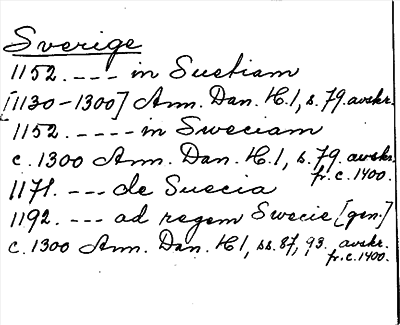 Sverige
1152. ---- in Suetiam
[1130-1300] Ann. Dan. H.1, s. 79. avskr.
1152. ----- in Sweciam
c. 1300 Ann. Dan. H.1, s. 79. avskr.
fr. c. 1400.
1171. --- de Suecia
1192. --- ad regem Swecie [gen.]
c. 1300 Ann. Dan. H1, ss. 87, 93. avskr.
fr. c. 1400.